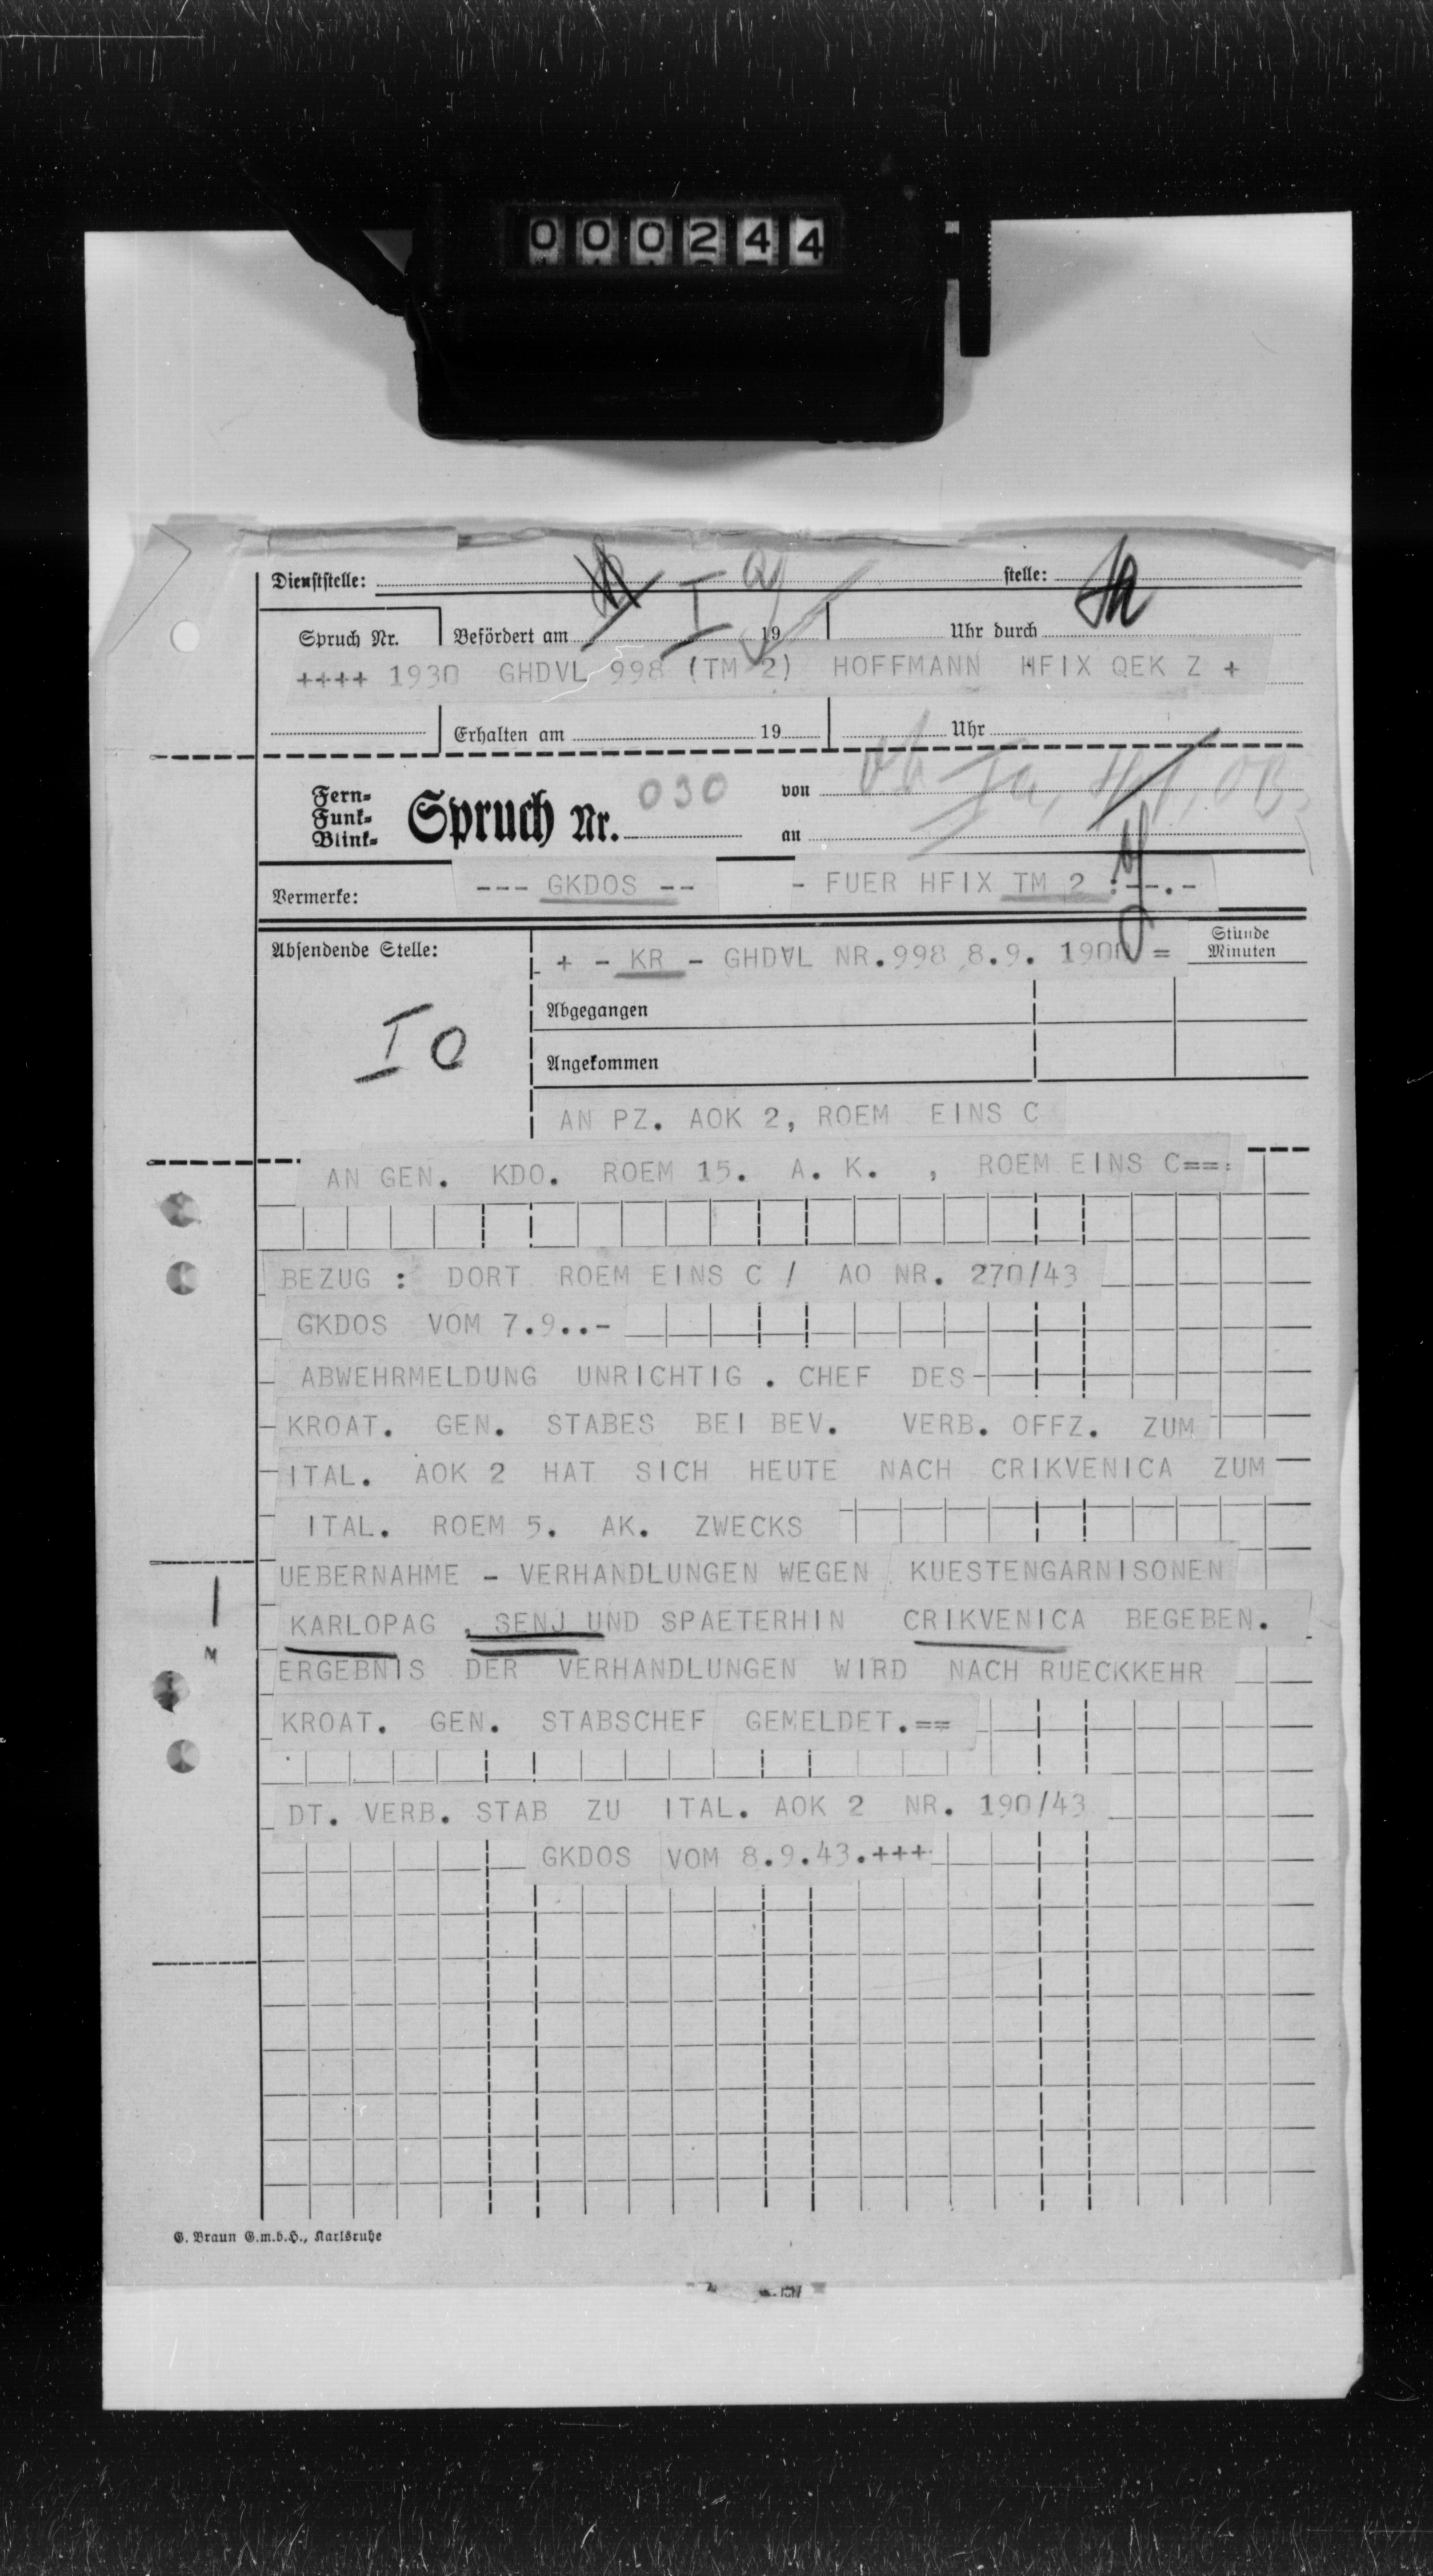 000244
Dienststelle: stelle:
Spruch Nr. Befördert am 19 Uhr durch
++++ 1930 GHDVL 998 (TM 2) HOFFMANN HFIX QEK Z +
Erhalten am 19 Uhr
Fern-
Funk-
Blink-
Spruch Nr. 030 von
an
Vermerke: --- GKDOS -- - FUER HFIX TM 2 :--.-
Absendende Stelle: + - KR - GHDVL NR.998 8.9. 1900 = Stunde
Minuten
Abgegangen
Angekommen
AN PZ. AOK 2, ROEM EINS C
AN GEN. KDO. ROEM 15. A. K. , ROEM EINS C==:
BEZUG : DORT ROEM EINS C / AO NR. 270/43
GKDOS VOM 7.9..-
ABWEHRMELDUNG UNRICHTIG . CHEF DES
KROAT. GEN. STABES BEI BEV. VERB. OFFZ. ZUM
ITAL. AOK 2 HAT SICH HEUTE NACH CRIKVENICA ZUM
ITAL. ROEM 5. AK. ZWECKS
UEBERNAHME - VERHANDLUNGEN WEGEN KUESTENGARNISONEN
KARLOPAG , SENJ UND SPAETERHIN CRIKVENICA BEGEBEN.
ERGEBNIS DER VERHANDLUNGEN WIRD NACH RUECKKEHR
KROAT. GEN. STABSCHEF GEMELDET.==
DT. VERB. STAB ZU ITAL. AOK 2 NR. 190/43
GKDOS VOM 8.9.43.+++
G. Braun G.m.b.H., Karlsruhe